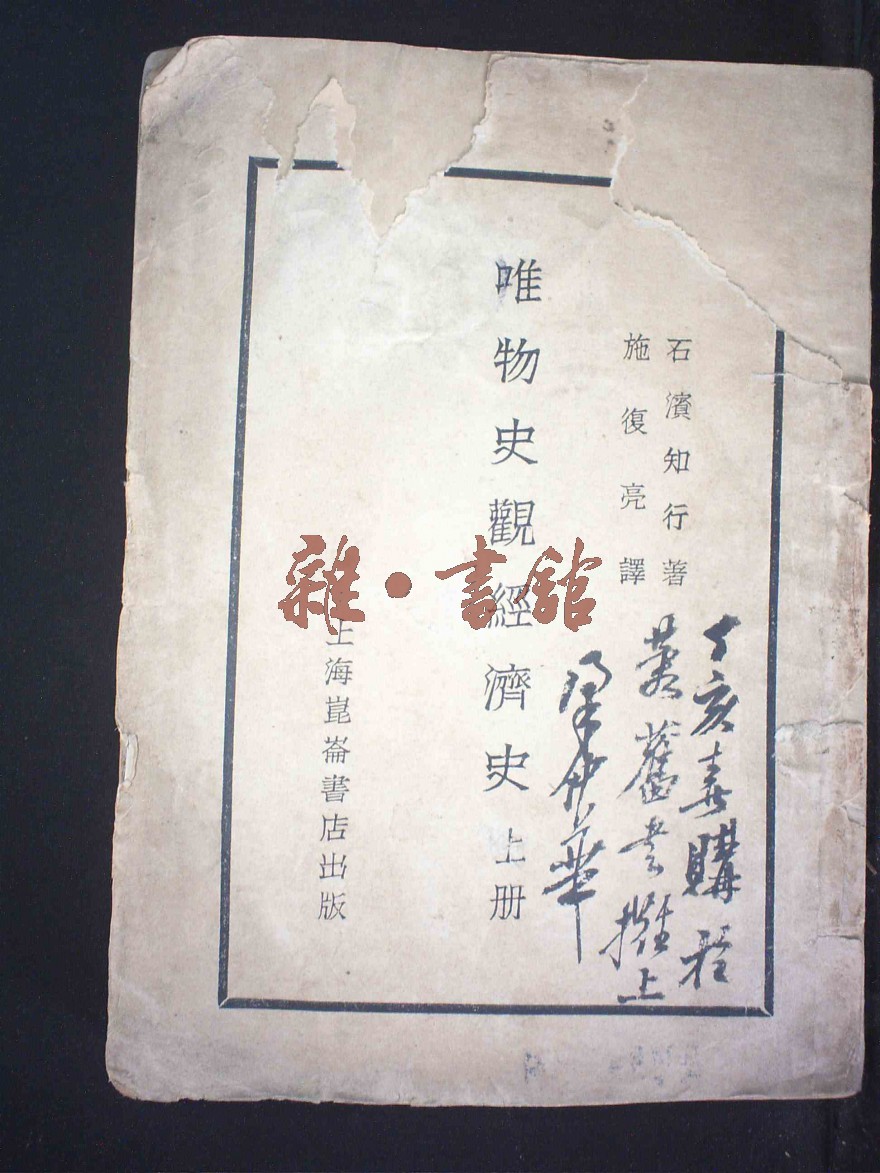 石濱知行著
施復亮譯
唯物史觀經濟史 上册
上海崑崙書店出版
丁亥春購於
舊書攤上
華
雜·書館